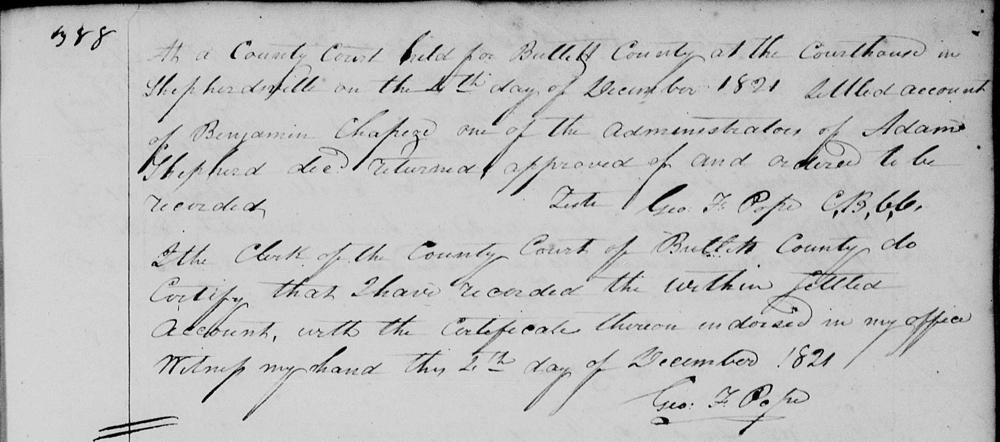 388
At a County Court held for Bullitt County at the Courthouse in
Shepherdsville on the 4th day of December 1821 Settled account
of Benjamin Chapeze one of the Administrators of Adam
Shepherd decd. returned, approved of and ordered to be
recorded,
Teste Geo: F. Pope C,B,C,C,
I the Clerk of the County Court of Bullitt County do
Certify that I have recorded the within Settled
Account, with the Certificate thereon endorsed in my office
Witness my hand this day of December 1821
Geo: F. Pope